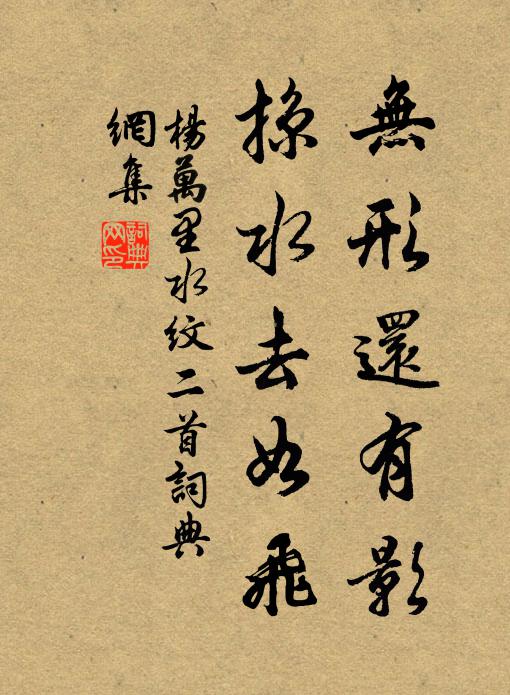 無形還有影
掠水去如飛
楊萬里水紋二首詞典
網集
詞典
网印